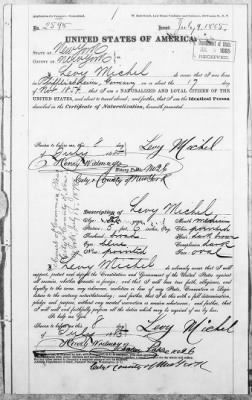 No. 2545
Issued July 9, 1885.
UNITED STATES OF AMERICA.
STATE OF New York
COUNTY OF New York
I, Levy Michel, do swear that I was born
Germany on or about the 17 day
of Nov 1854, that I am a NATURALIZED AND LOYAL CITIZEN OF THE
UNITED STATES, and about to travel abroad; and further, that I am the Identical Person
described in the Certificate of Naturalization, herewith presented.
Sworn to before me, this 8 day
of July 1885
Levy Michel
Notary Public No 26
City & County of New York
Description of Levy Michel
Age:
Stature: 5 feet, 6
Mouth: medium
Chin: pointed
Hair: dark brown
Eyes: blue
Complexion: dark
Nose: pointed
Face: oval
I, Levy Michel do solemnly swear that I will
support, protect and defend the Constitution and Government of the United States against
all enemies, whether domestic or foreign; and that I will bear true faith, allegiance, and
loyalty to the same, any ordinance, resolution or law of any State, Convention or Legis-
lature to the contrary notwithstanding; and further, that I do this with a full determination,
pledge and purpose, without any mental reservation or evasion whatsoever; and further, that
I will well and faithfully perform all the duties which may be required of me by law.
So help me God.
Sworn to before me, this 8 day
of July 1885
Levy Michel
City & County of New York